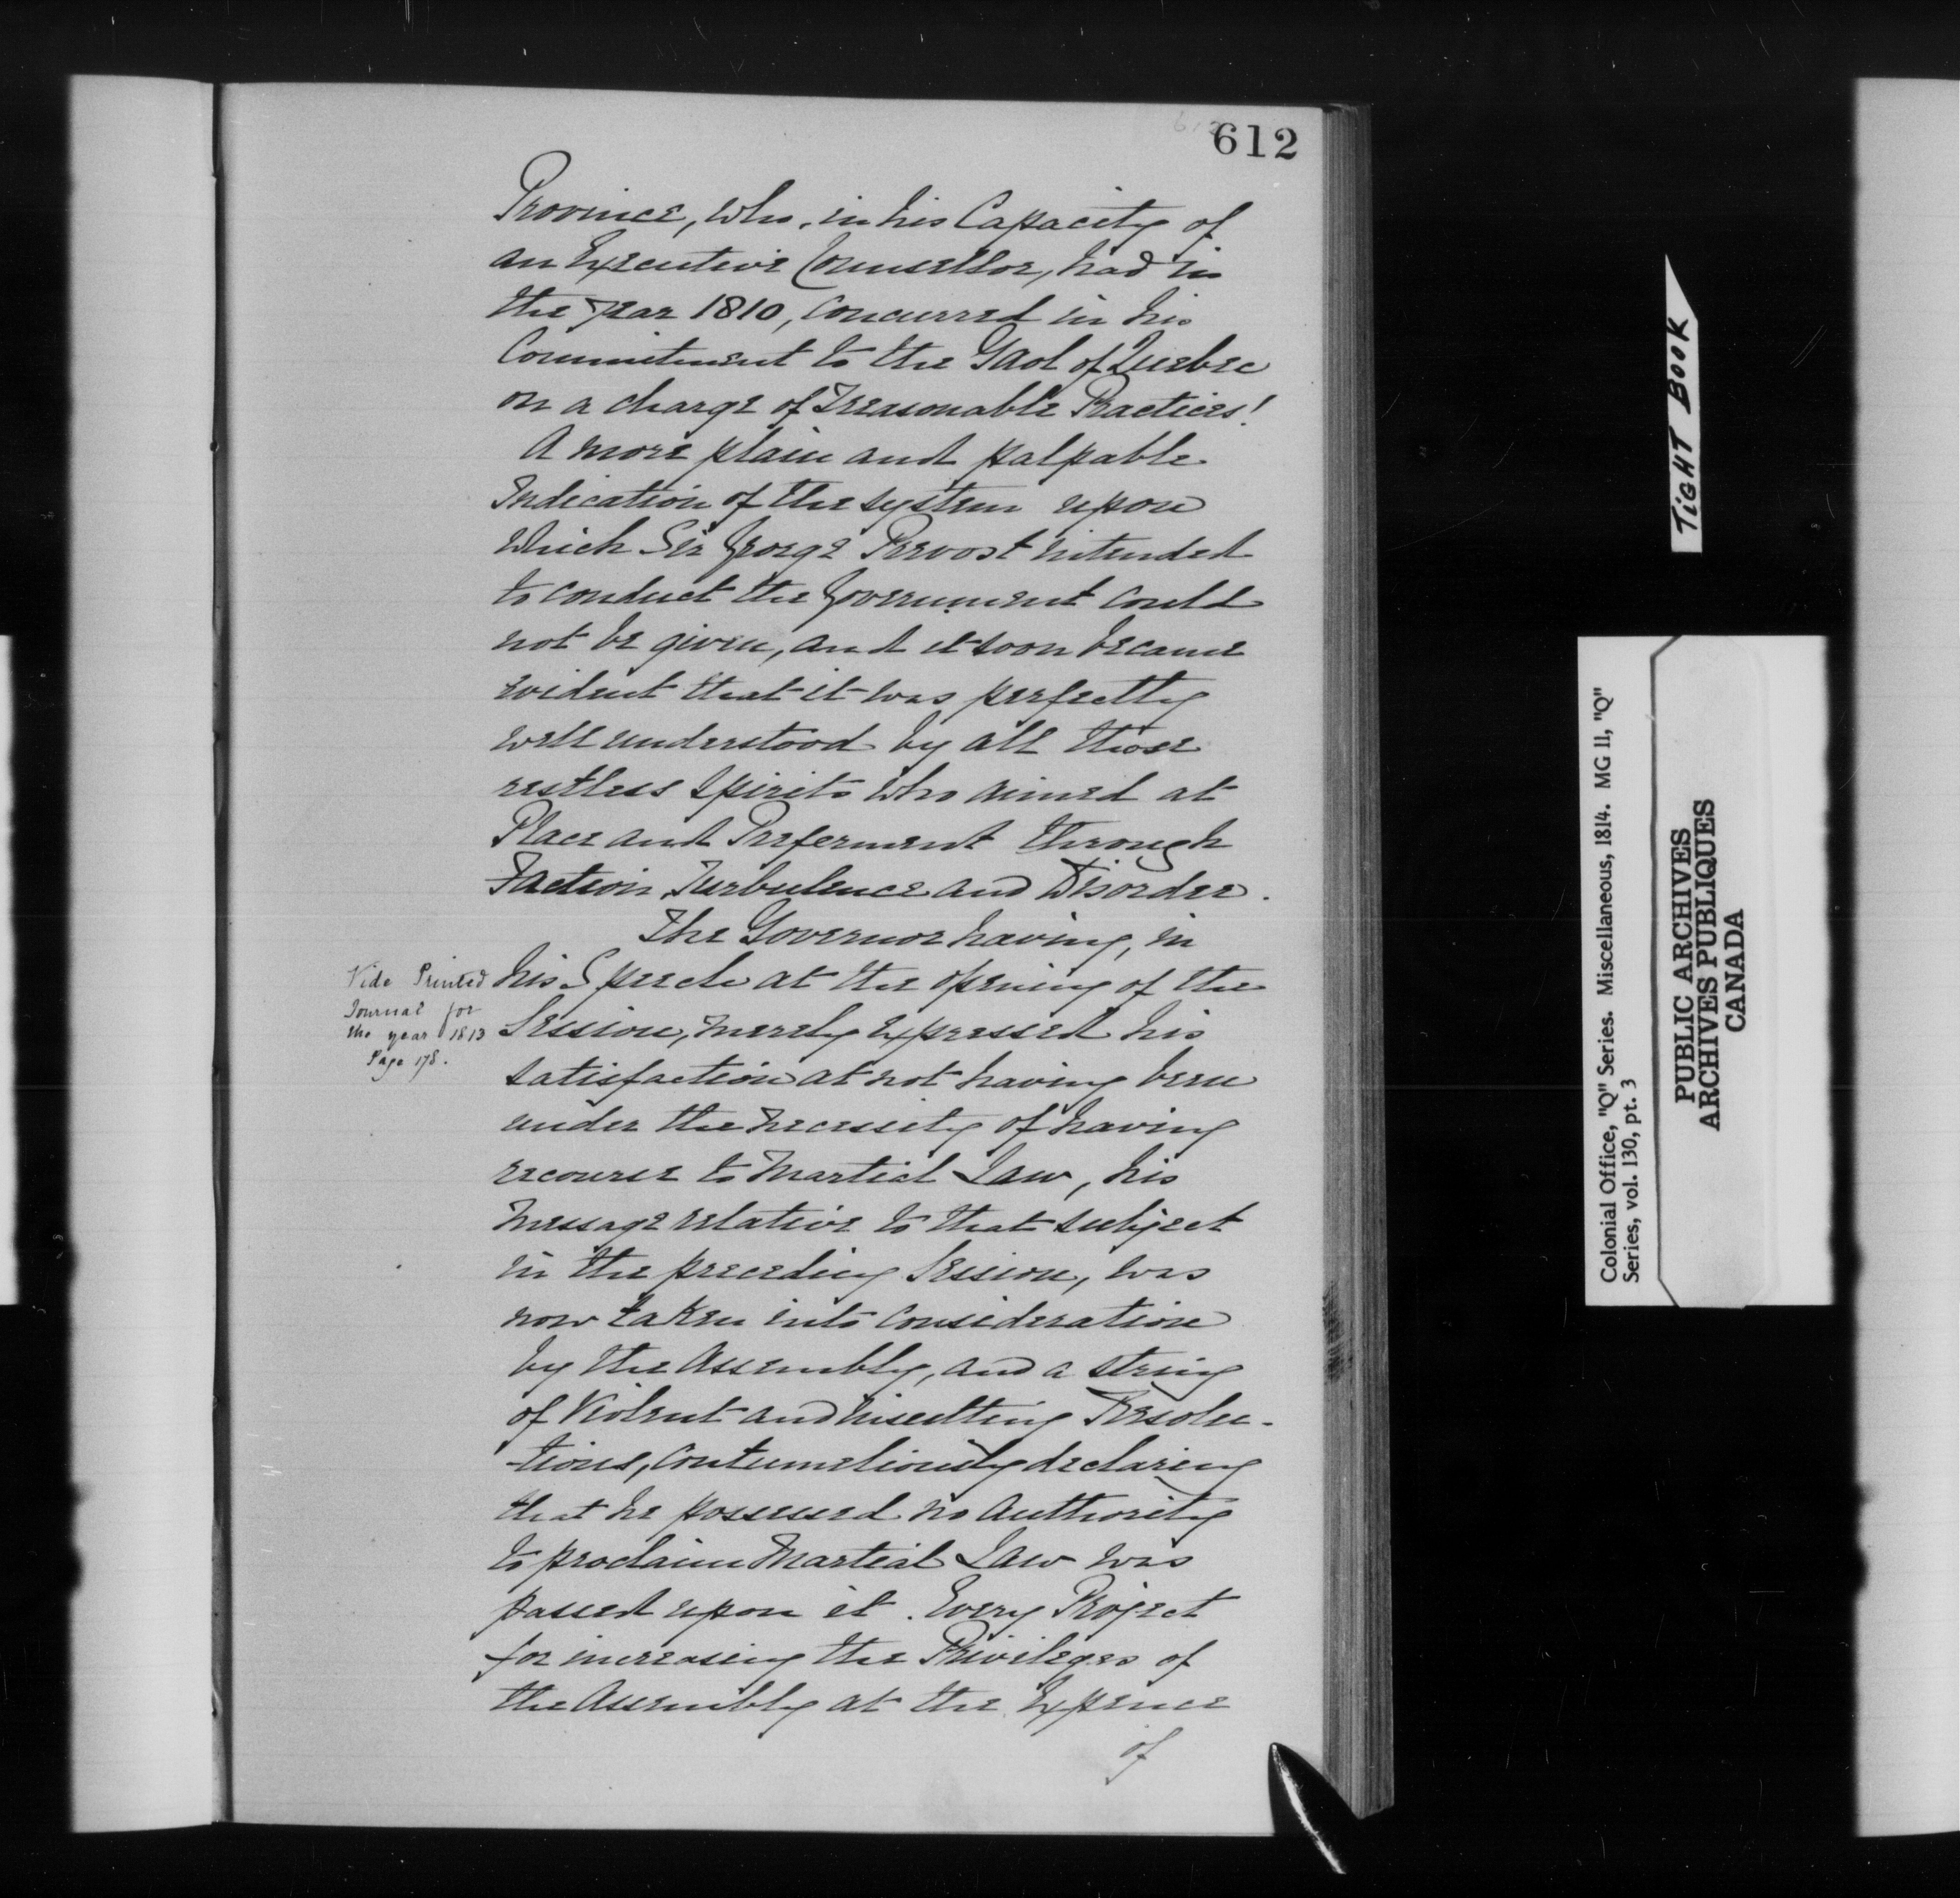 612
Province, who, in his Capacity of
an Executive Counsellor, had in
the year 1810, concurred in his
Commitment to the Gaol of Quebec
on a charge of Treasonable Practices!
A more plain and palpable
Indication of the system upon
which Sir George Prevost intended
to conduct the Government could
not be given, and it soon became
evident that it was perfectly
well understood by all those
restless spirits who aimed at
Place and Preferment through
Faction, Turbulence and Disorder.
The Governor having, in
his Speech at the opening of the
Session, merely expressed his
satisfaction at not having been
under the necessity of having
recourse to Martial Law, his
Message relative to that subject
in the preceding Session, was
now taken into consideration
by the Assembly, and a string
of Violent and insulting Resolu-
-tions, contumeliously declaring
that he possessed no authority
to proclaim Martial Law was
passed upon it. Every Project
for increasing the Privileges of
the Assembly at the Expence
of
Vide Printed
Journal for
the year 1813
Page 178.
TIGHT BOOK
Colonial Office, "Q" Series. Miscellaneous, 1814. MG 11, "Q"
Series, vol. 130, pt. 3
PUBLIC ARCHIVES
ARCHIVES PUBLIQUES
CANADA